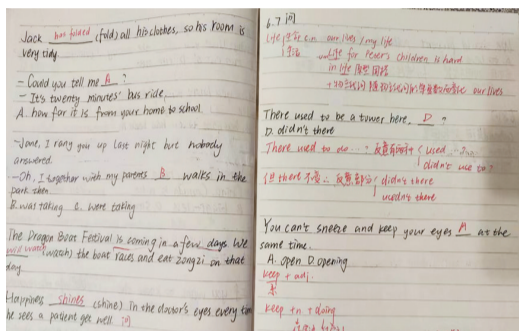 Jack has folded (fold) all his clothes, so his room is
very tidy.
- Could you tell me A ?
- It's twenty minutes' bus ride.
A. how far it is from your home to school
- Jane, I rang you up last night but nobody
answered.
- Oh, I together with my parents B walks in the
park then.
B. was taking C. were taking
The Dragon Boat Festival is coming in a few days. We
will watch (watch) the boat races and eat zongzi on that
day.
Happiness shines (shine) in the doctor's eyes every time
he sees a patient get well.
6.7 问
life 生命 our lives / my life
生活 Life for Peter's children is hard
in life
our lives
There used to be a tower here, D ?
D. didn't there
There used to do...? 反意疑问 used
didn't use to?
但 there 不变 反意部分 didn't there
usedn't there
You can't sneeze and keep your eyes A at the
same time.
A. open D. opening
keep + adj.
keep + n + doing